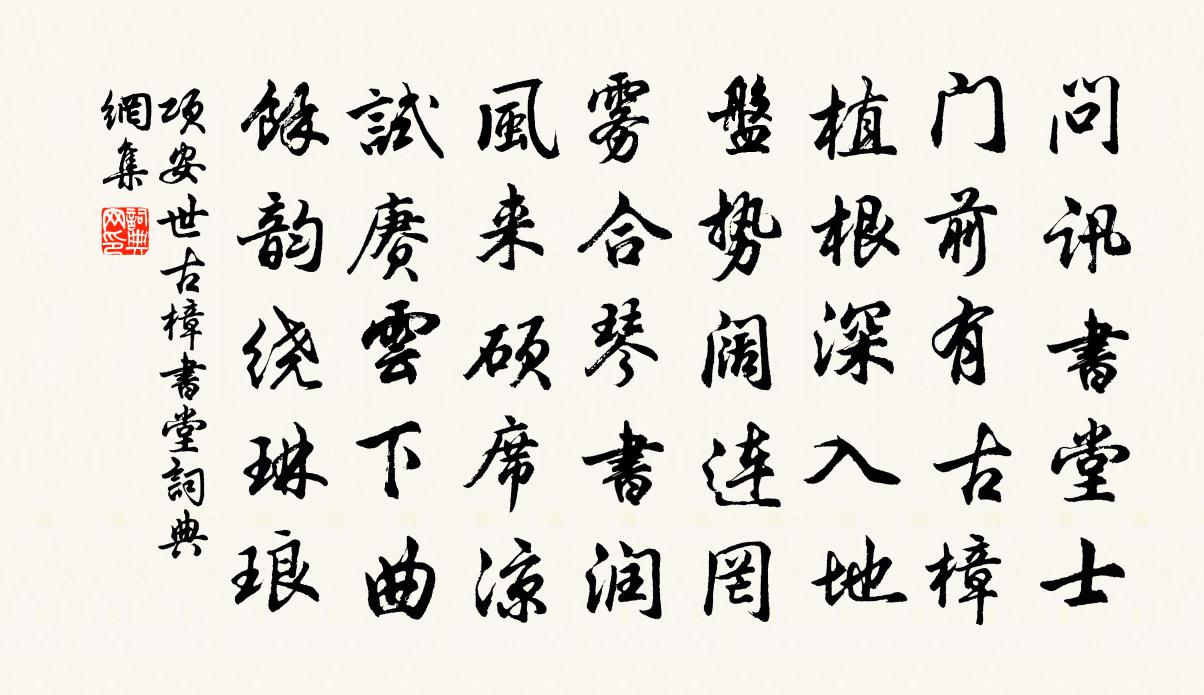 问讯書堂士
门前有古樟
植根深入地
盤势阔连罔
雾合琴書润
風来硕席凉
試赓雲下曲
餘韵绕琳琅
项安世古樟書堂詞典
網集
詞典网印